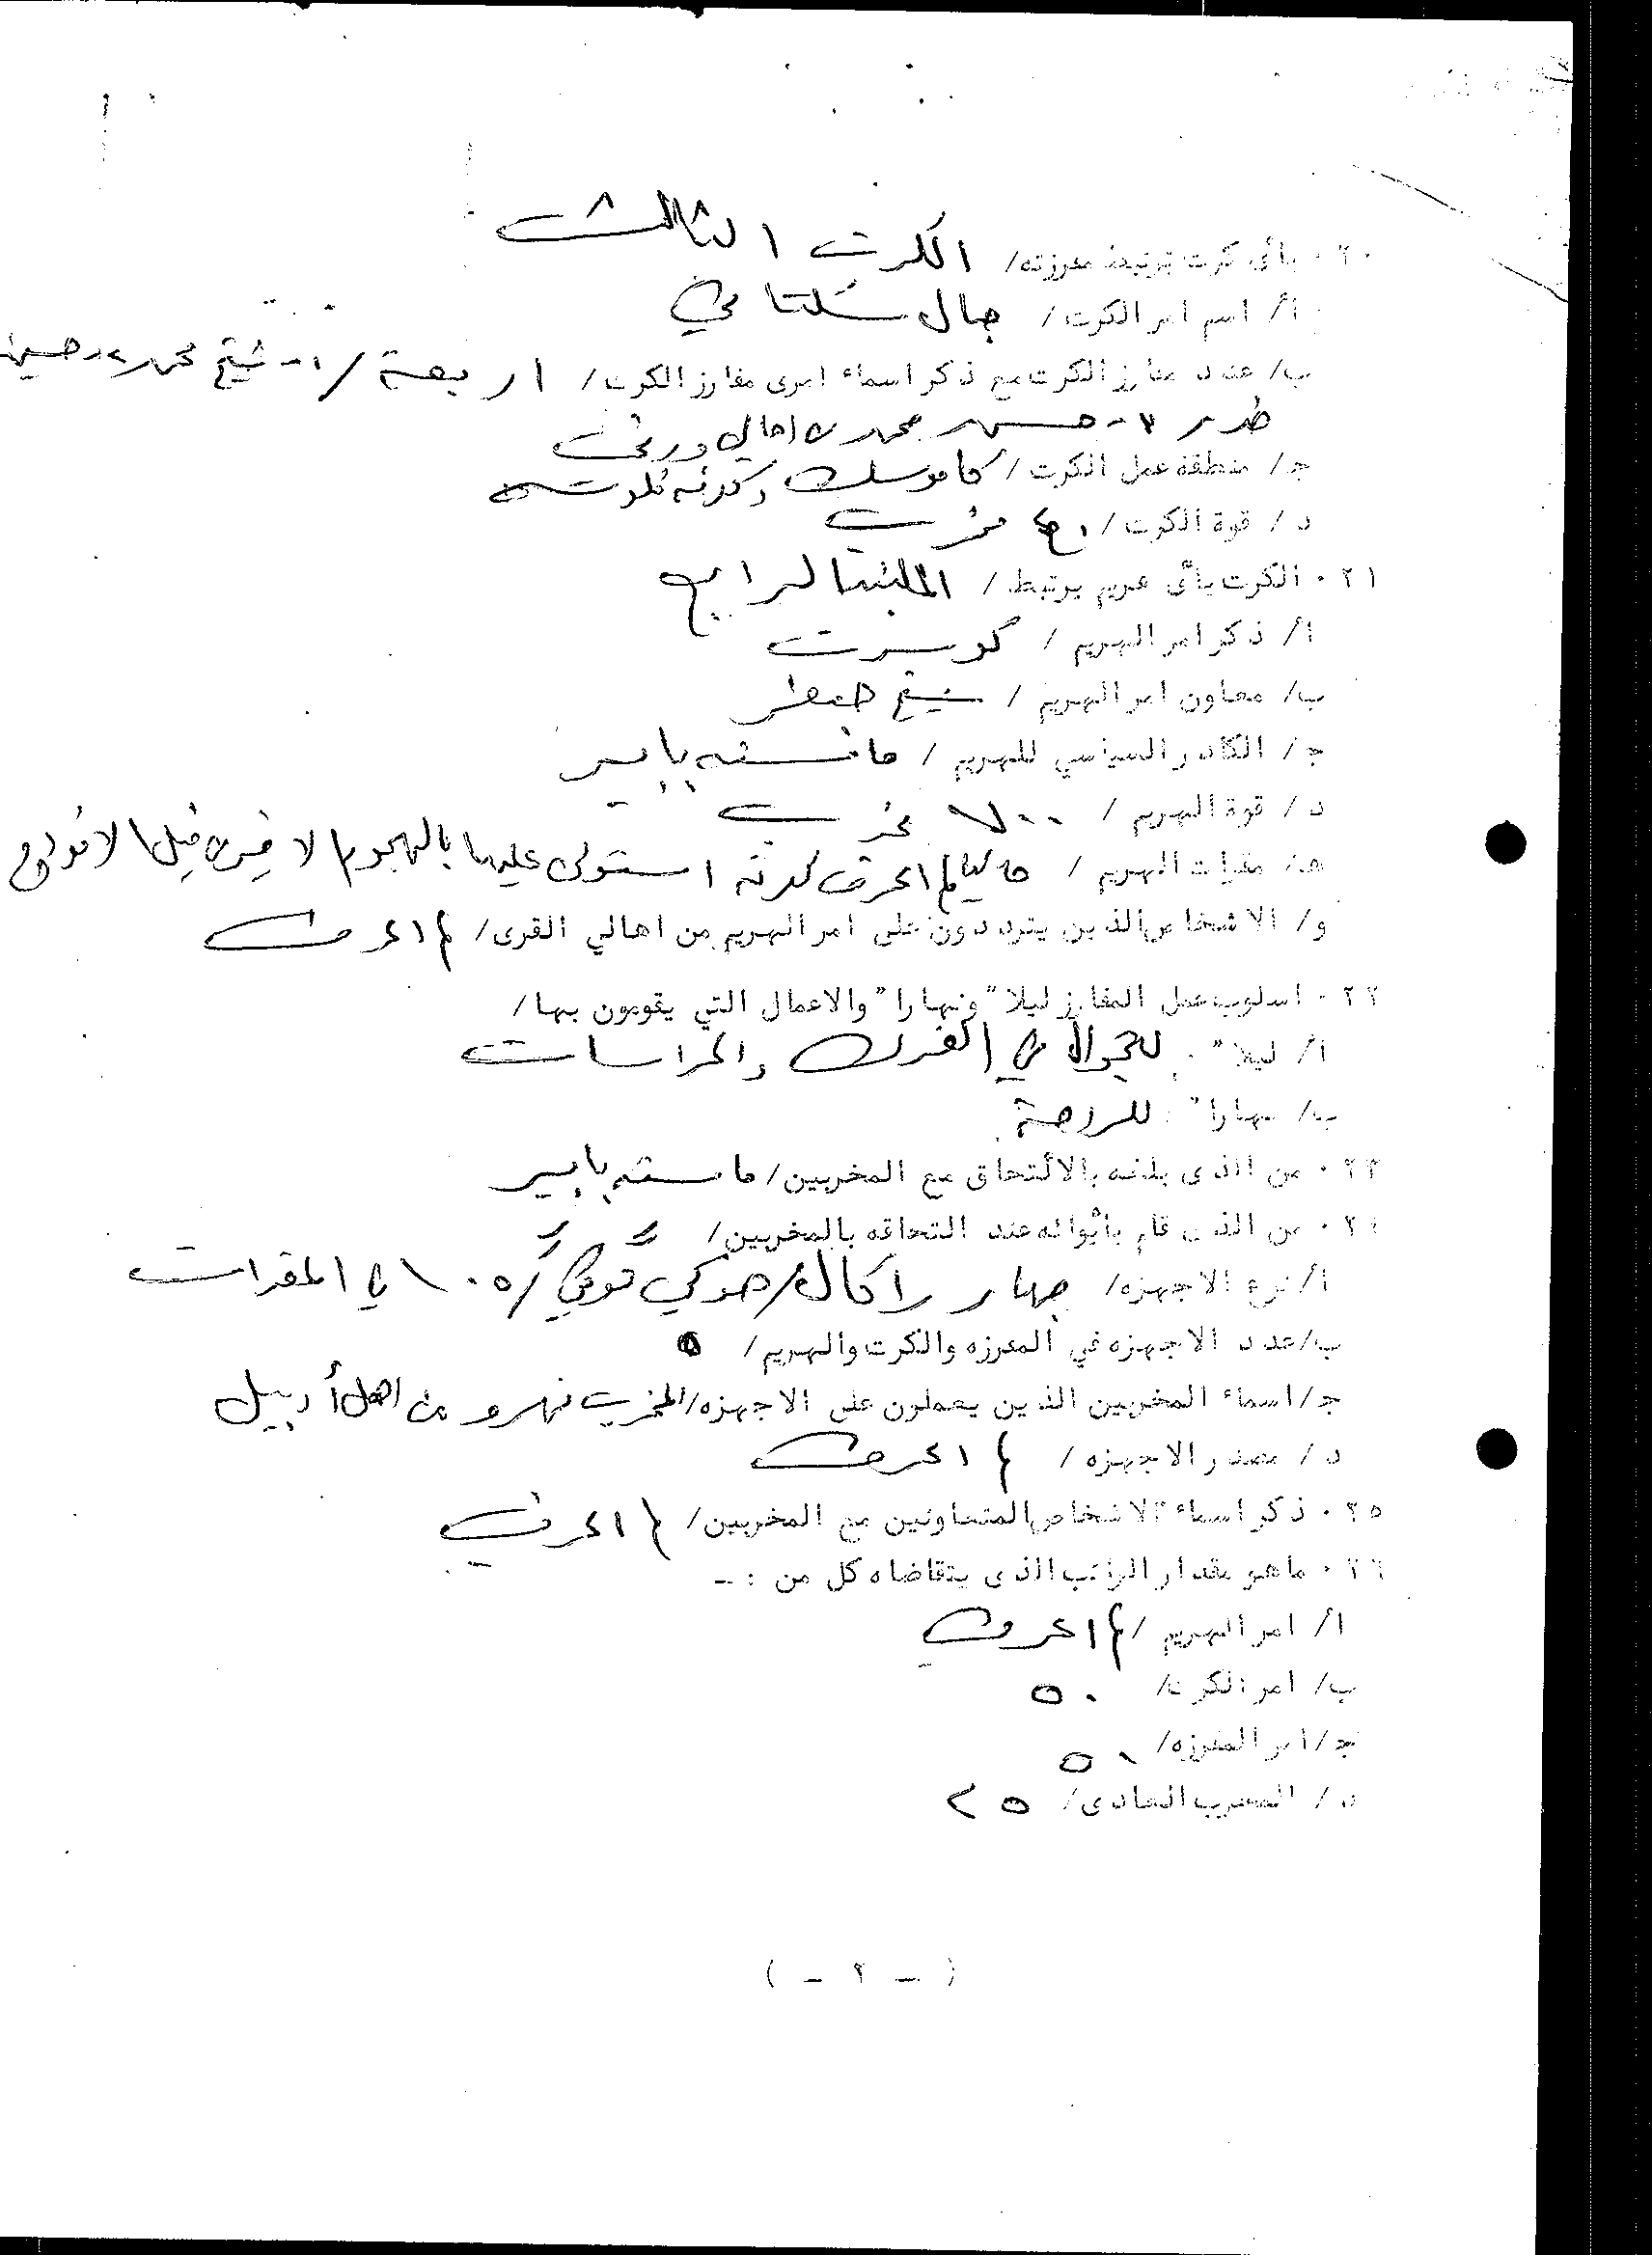 ٢٠. بأى كرت ترتبط مفرزته/ الكرت الثالث
أ/ اسم امر الكرت/ جال
ب/ عدد مفارز الكرت مع ذكر اسماء امرى مفارز الكرت/ اربعة /١- شيخ محمد حسين
محمد من اهالي
ج/ منطقة عمل الكرت/
د/ قوة الكرت/ مخرب
٢١. الكرت بأى هريم يرتبط/ الرابع
أ/ ذكر امر الهريم/ كوسرت
ب/ معاون امر الهريم/ شيخ جعفر
ج/ الكادر السياسي للهريم/ بابير
د/ قوة الهريم/ ٧٠٠ مخرب
هـ/ مقرات الهريم/ استولى عليها بالهجوم الاخير
و/ الاشخاص الذين يترددون على امر الهريم من اهالي القرى/ لم اعرف
٢٢. اسلوب عمل المفارز ليلا" ونهارا" والاعمال التي يقومون بها/
أ/ ليلا". في القرى والحراسات
ب/ نهارا": للراحة
٢٣. من الذى بلغه بالالتحاق مع المخربين/ مامسته بابير
٢٤. من الذى قام بأيوائه عند التحاقه بالمخربين/ " "
أ/ نوع الاجهزه/ جهاز راكال/هوكي توكي/١٠٥ في المقرات
ب/عدد الاجهزه في المفرزه والكرت والهريم/ ٥
ج/اسماء المخربين الذين يعملون على الاجهزه/المخرب نهرو من اهل أربيل
د/ مصدر الاجهزه/ لم اعرف
٢٥. ذكر اسماء الاشخاص المتعاونين مع المخربين/ لم اعرف
٢٦. ماهو مقدار الراتب الذى يتقاضاه كل من :ـ
أ/ امر الهريم/ لم اعرف
ب/ امر الكرت/ ٥٠
ج/امر المفرزه/ ٥٠
د/ المخرب العادى/ ٢٥
( ـ ٢ ـ )